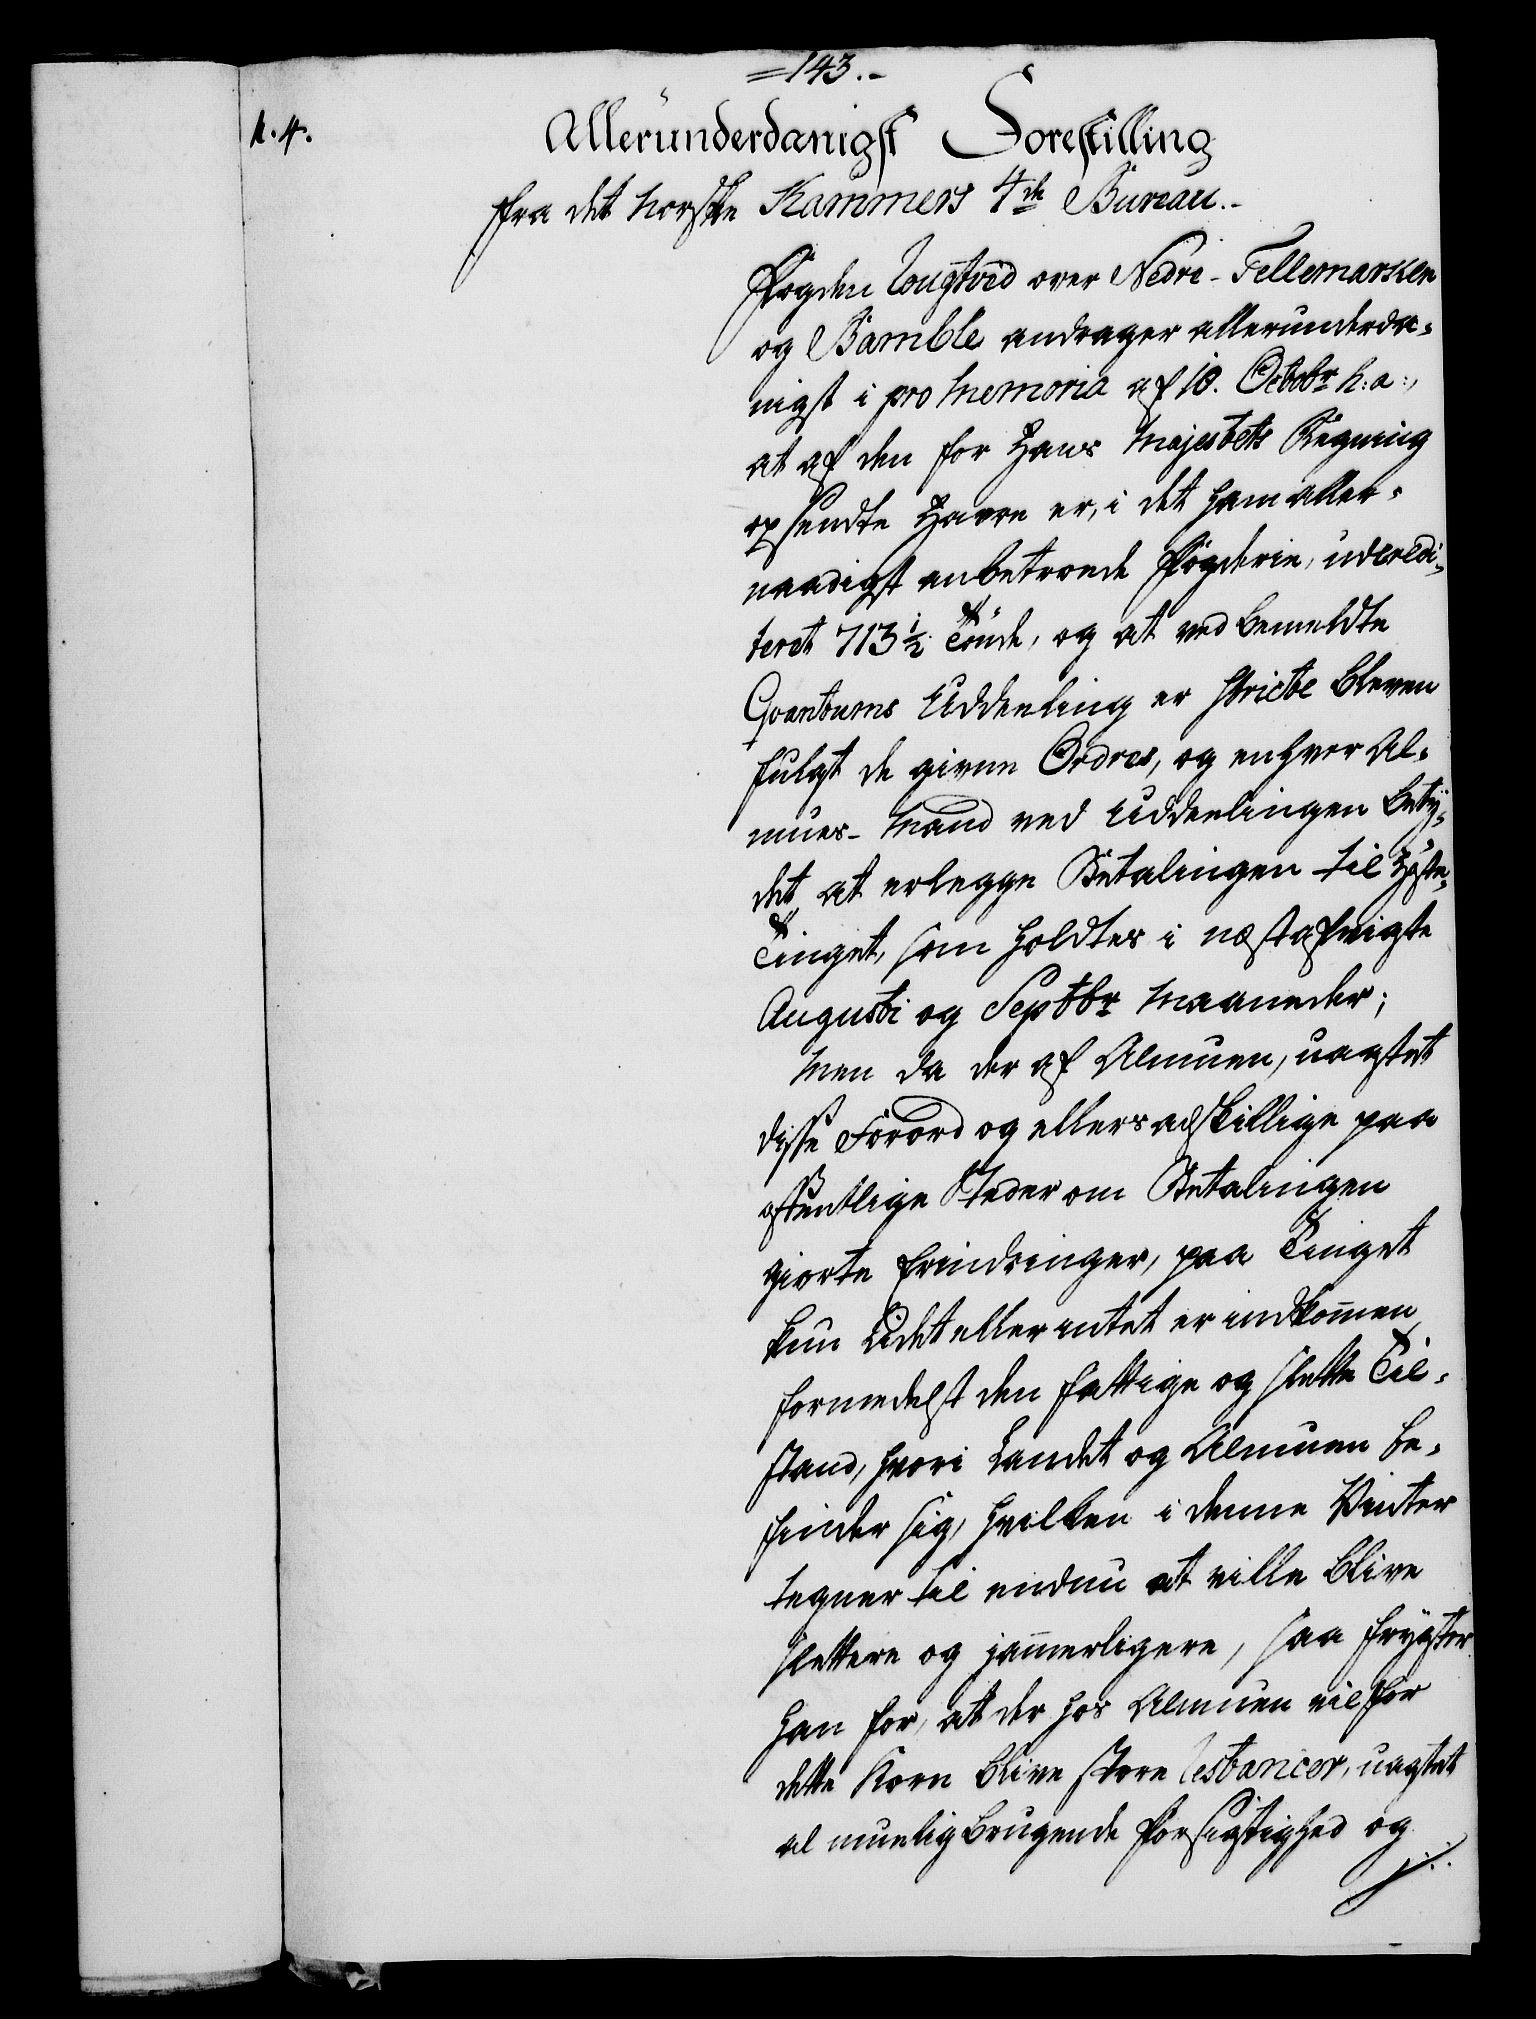 =143.-
N. 4.
Allerunderdanigst Forestilling
fra det norske Kammers 4de Bureau.-
Fogden Lougtvid over Nedre-Tellemarken
og Bamble andrager allerunderda-
nigst i pro Memoria af 10. Octobr h: a:,
at af den for Hans Majestets Regning
opsendte Havre er, i det ham aller-
naadigst anbetroede Fogderie, udcredi-
teret 713½ Tønde, og at ved bemeldte
Qvantums Uddeeling er stricte bleven
fulgt de givne Ordres, og enhver Al-
mues-Mand ved Uddeelingen bety-
det at erlegge Betalingen til Høste-
Tinget, som holdtes i næstafvigte
Augusti og Septbr Maaneder;
Men da der af Almuen, uagtet
disse Forord og ellers adskillige paa
offentlige Steder om Betalingen
giorte Erindringer, paa Tinget
kun Lidet eller intet er indkom̄en
formedelst den fattige og slette Til-
stand, hvori Landet og Almuen be-
finder sig, hvilken i denne Vinter
tegner til endnu at ville blive
slettere og jam̄erligere, saa frygter
han for, at der hos Almuen vil for
dette Korn blive store Restancer, uagtet
al muelig brugende Forsigtighed og